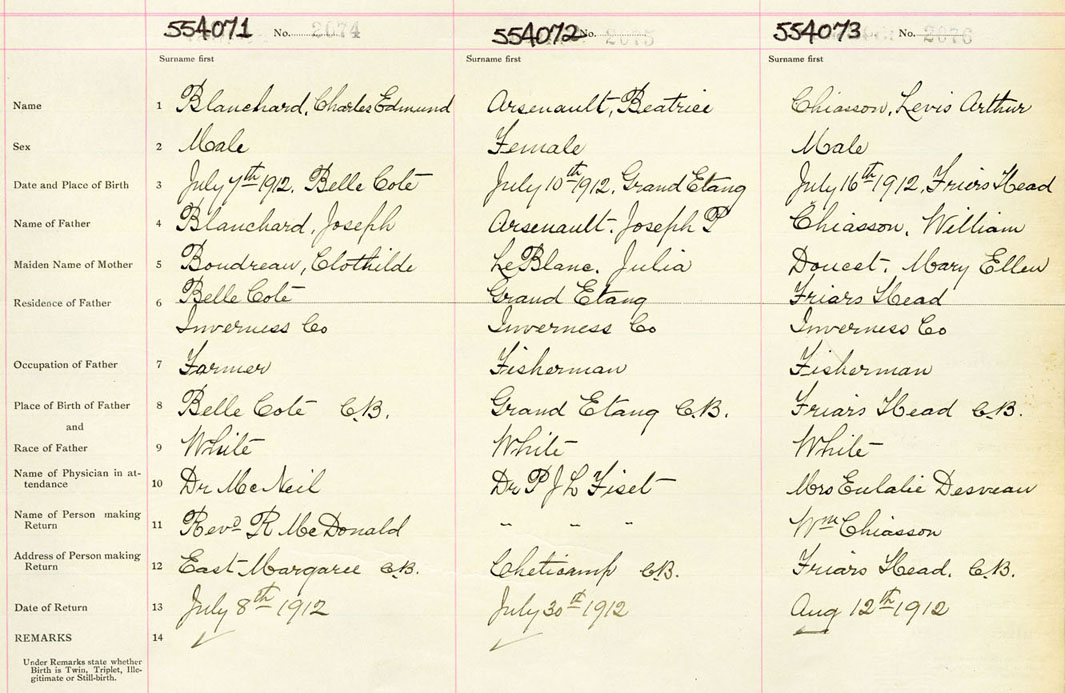 554071 No. 2074 554072 No. 2075 554073 No. 2076
Surname first Surname first Surname first
Name 1 Blanchard, Charles Edmund Arsenault, Beatrice Chiasson, Levis Arthur
Sex 2 Male Female Male
Date and Place of Birth 3 July 7th 1912, Belle Coté July 10th 1912, Grand Etang July 16th 1912, Friars Head
Name of Father 4 Blanchard, Joseph Arsenault, Joseph P Chiasson, William
Maiden Name of Mother 5 Boudreau, Clothilde LeBlanc, Julia Doucet, Mary Ellen
Residence of Father 6 Belle Coté Grand Etang Friars Head
Inverness Co Inverness Co Inverness Co
Occupation of Father 7 Farmer Fisherman Fisherman
Place of Birth of Father 8 Belle Coté C.B. Grand Etang C.B. Friars Head C.B.
and
Race of Father 9 White White White
Name of Physician in at-
tendance 10 Dr McNeil Dr P J L Fiset Mrs Eulalie Desveau
Name of Person making
Return 11 Revd R McDonald " " " Wm Chiasson
Address of Person making
Return 12 East Margaree C.B. Cheticamp C.B. Friars Head. C.B.
Date of Return 13 July 8th 1912 July 30th 1912 Aug 12th 1912
REMARKS 14
Under Remarks state whether
Birth is Twin, Triplet, Ille-
gitimate or Still-birth.